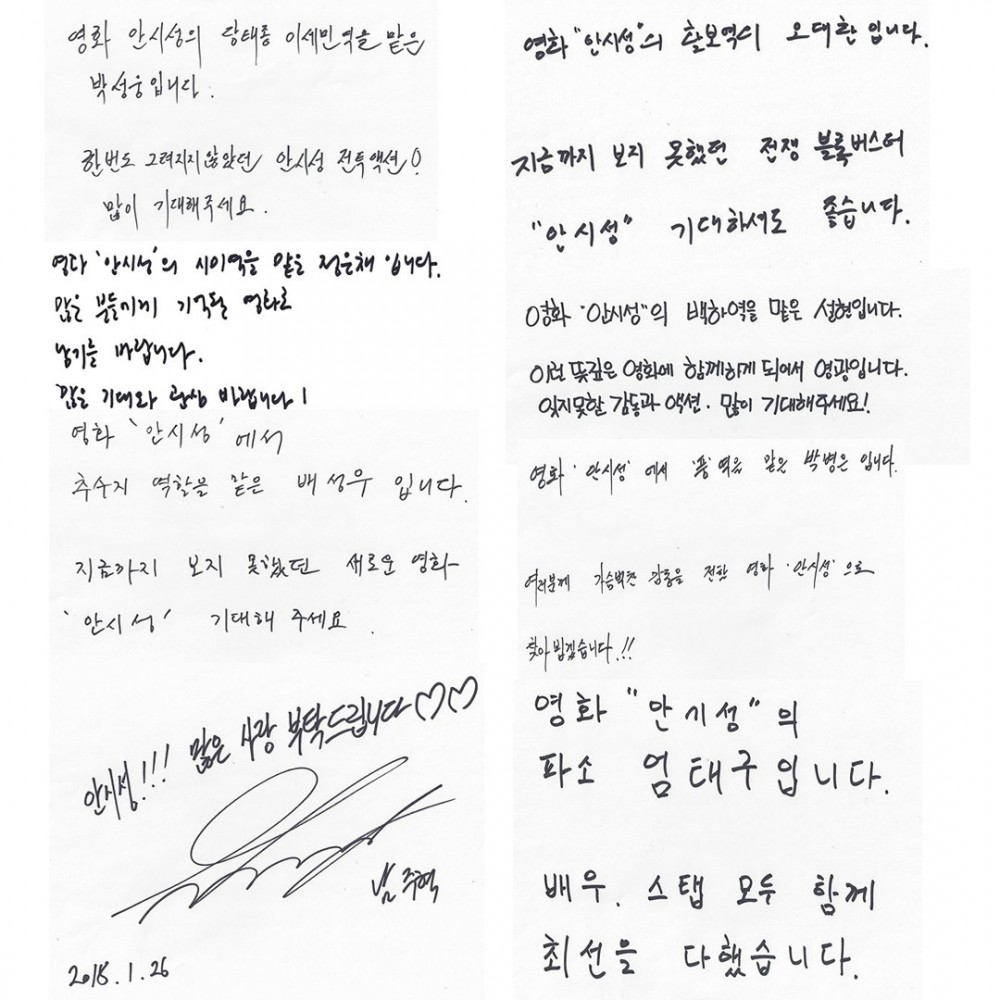 영화 안시성의 당태종 이세민역을 맡은
박성웅입니다.
한번도 그려지지않았던 안시성 전투액션!
많이 기대해주세요.
영화 '안시성'의 시미역을 맡은 정은채 입니다.
많은 분들에게 기억될 영화로
남기를 바랍니다.
많은 기대와 관심 바랍니다!
영화 '안시성'에서
추수지 역할을 맡은 배성우 입니다.
지금까지 보지 못했던 새로운 영화
'안시성' 기대해 주세요.
안시성!!! 많은 사랑 부탁드립니다♡♡
남주혁
2018.1.26
영화 "안시성"의 활보역의 오대환입니다.
지금까지 보지 못했던 전쟁 블록버스터
"안시성" 기대하셔도 좋습니다.
영화 "안시성"의 백하역을 맡은 설현입니다.
이런 뜻깊은 영화에 함께하게 되어서 영광입니다.
잊지못할 감동과 액션. 많이 기대해주세요!
영화 '안시성'에서 '풍'역을 맡은 박병은 입니다.
여러분께 가슴벅찬 감동을 전할 영화 '안시성'으로
찾아뵙겠습니다.!!
영화 "안시성"의
파소 엄태구입니다.
배우. 스탭 모두 함께
최선을 다했습니다.